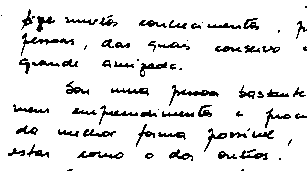 fiz muitos conhecimentos,
pessoas, das quais conservo
grande amizade.
Sou uma pessoa bastante
meus empreendimentos e procu
da melhor forma possível,
estar como o dos outros.